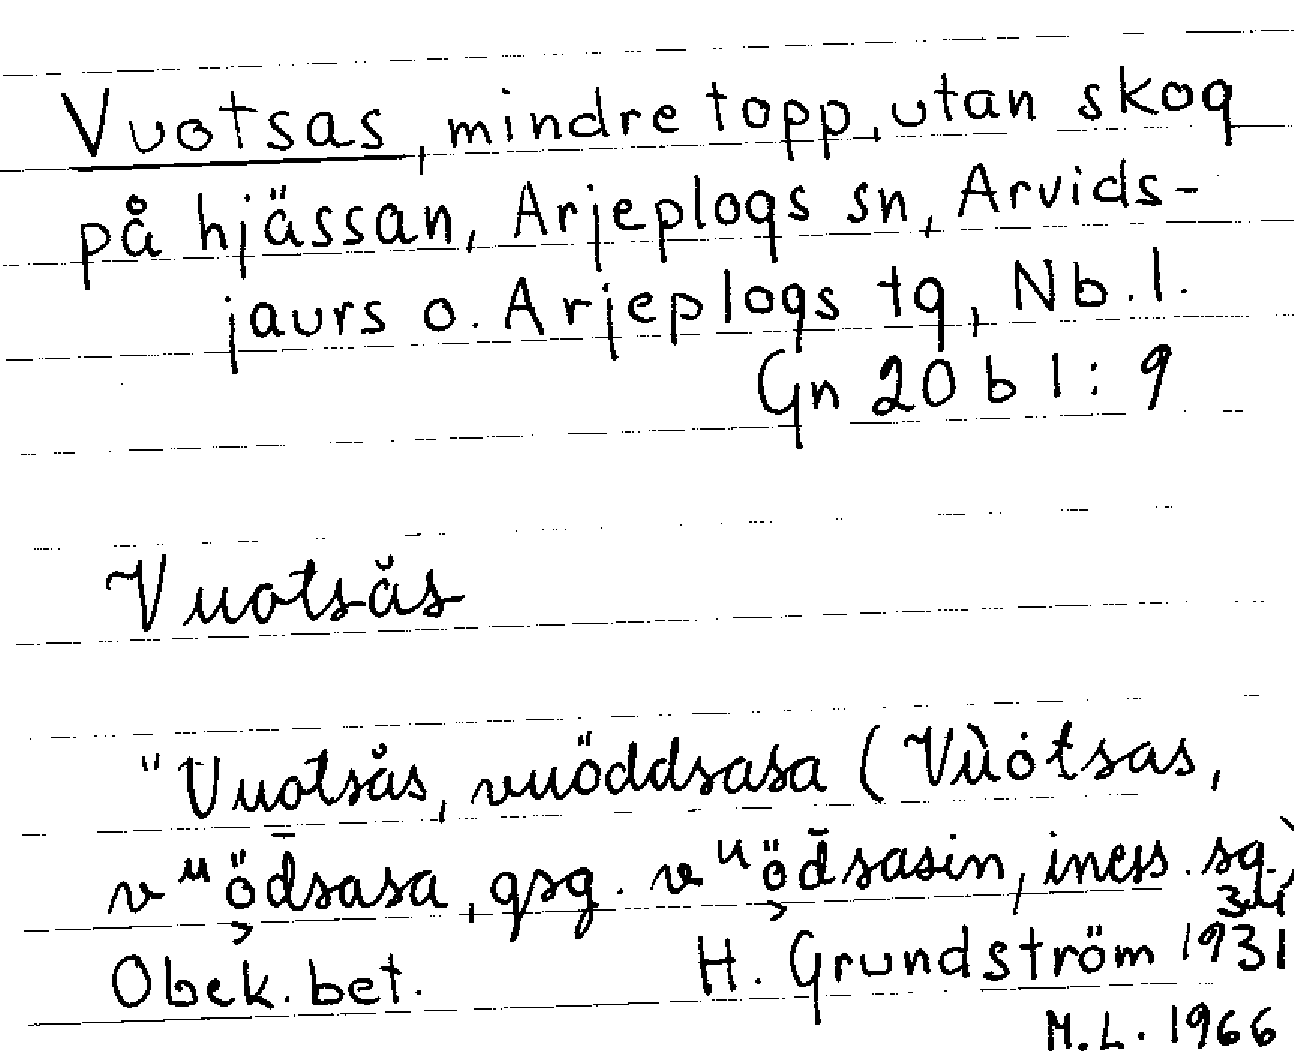 Vuotsas, mindre topp, utan skog
på hjässan, Arjeplogs sn, Arvids-
jaurs o. Arjeplogs tg, Nb. l.
Gn 20 b 1: 9
Vuotsăs
"Vuotsăs, vuöddsasa (Vùȯtsas,
vᵘöd̄sasa, gsg. vᵘöd̄sasin, iness. sg.)
Obek. bet. H. Grundström 1931
M.L. 1966